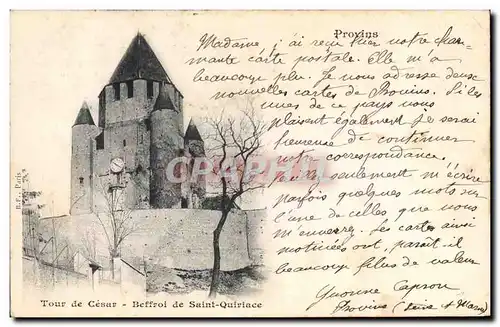 Provins
Madame, j'ai reçu hier votre char-
mante carte postale. Elle m'a
beaucoup plu. Je vous adresse deux
nouvelles cartes de Provins. Si les
vues de ce pays vous
plaisent également je serai
heureuse de continuer
notre correspondance.
seulement m'écrire
parfois quelques mots sur
l'une de celles que vous
m'enverrez. Les cartes ainsi
motivées ont, paraît-il
beaucoup plus de valeur
Yvonne Capron
Provins (Seine et Marne)
B. F., Paris
Tour de César - Beffroi de Saint-Quiriace